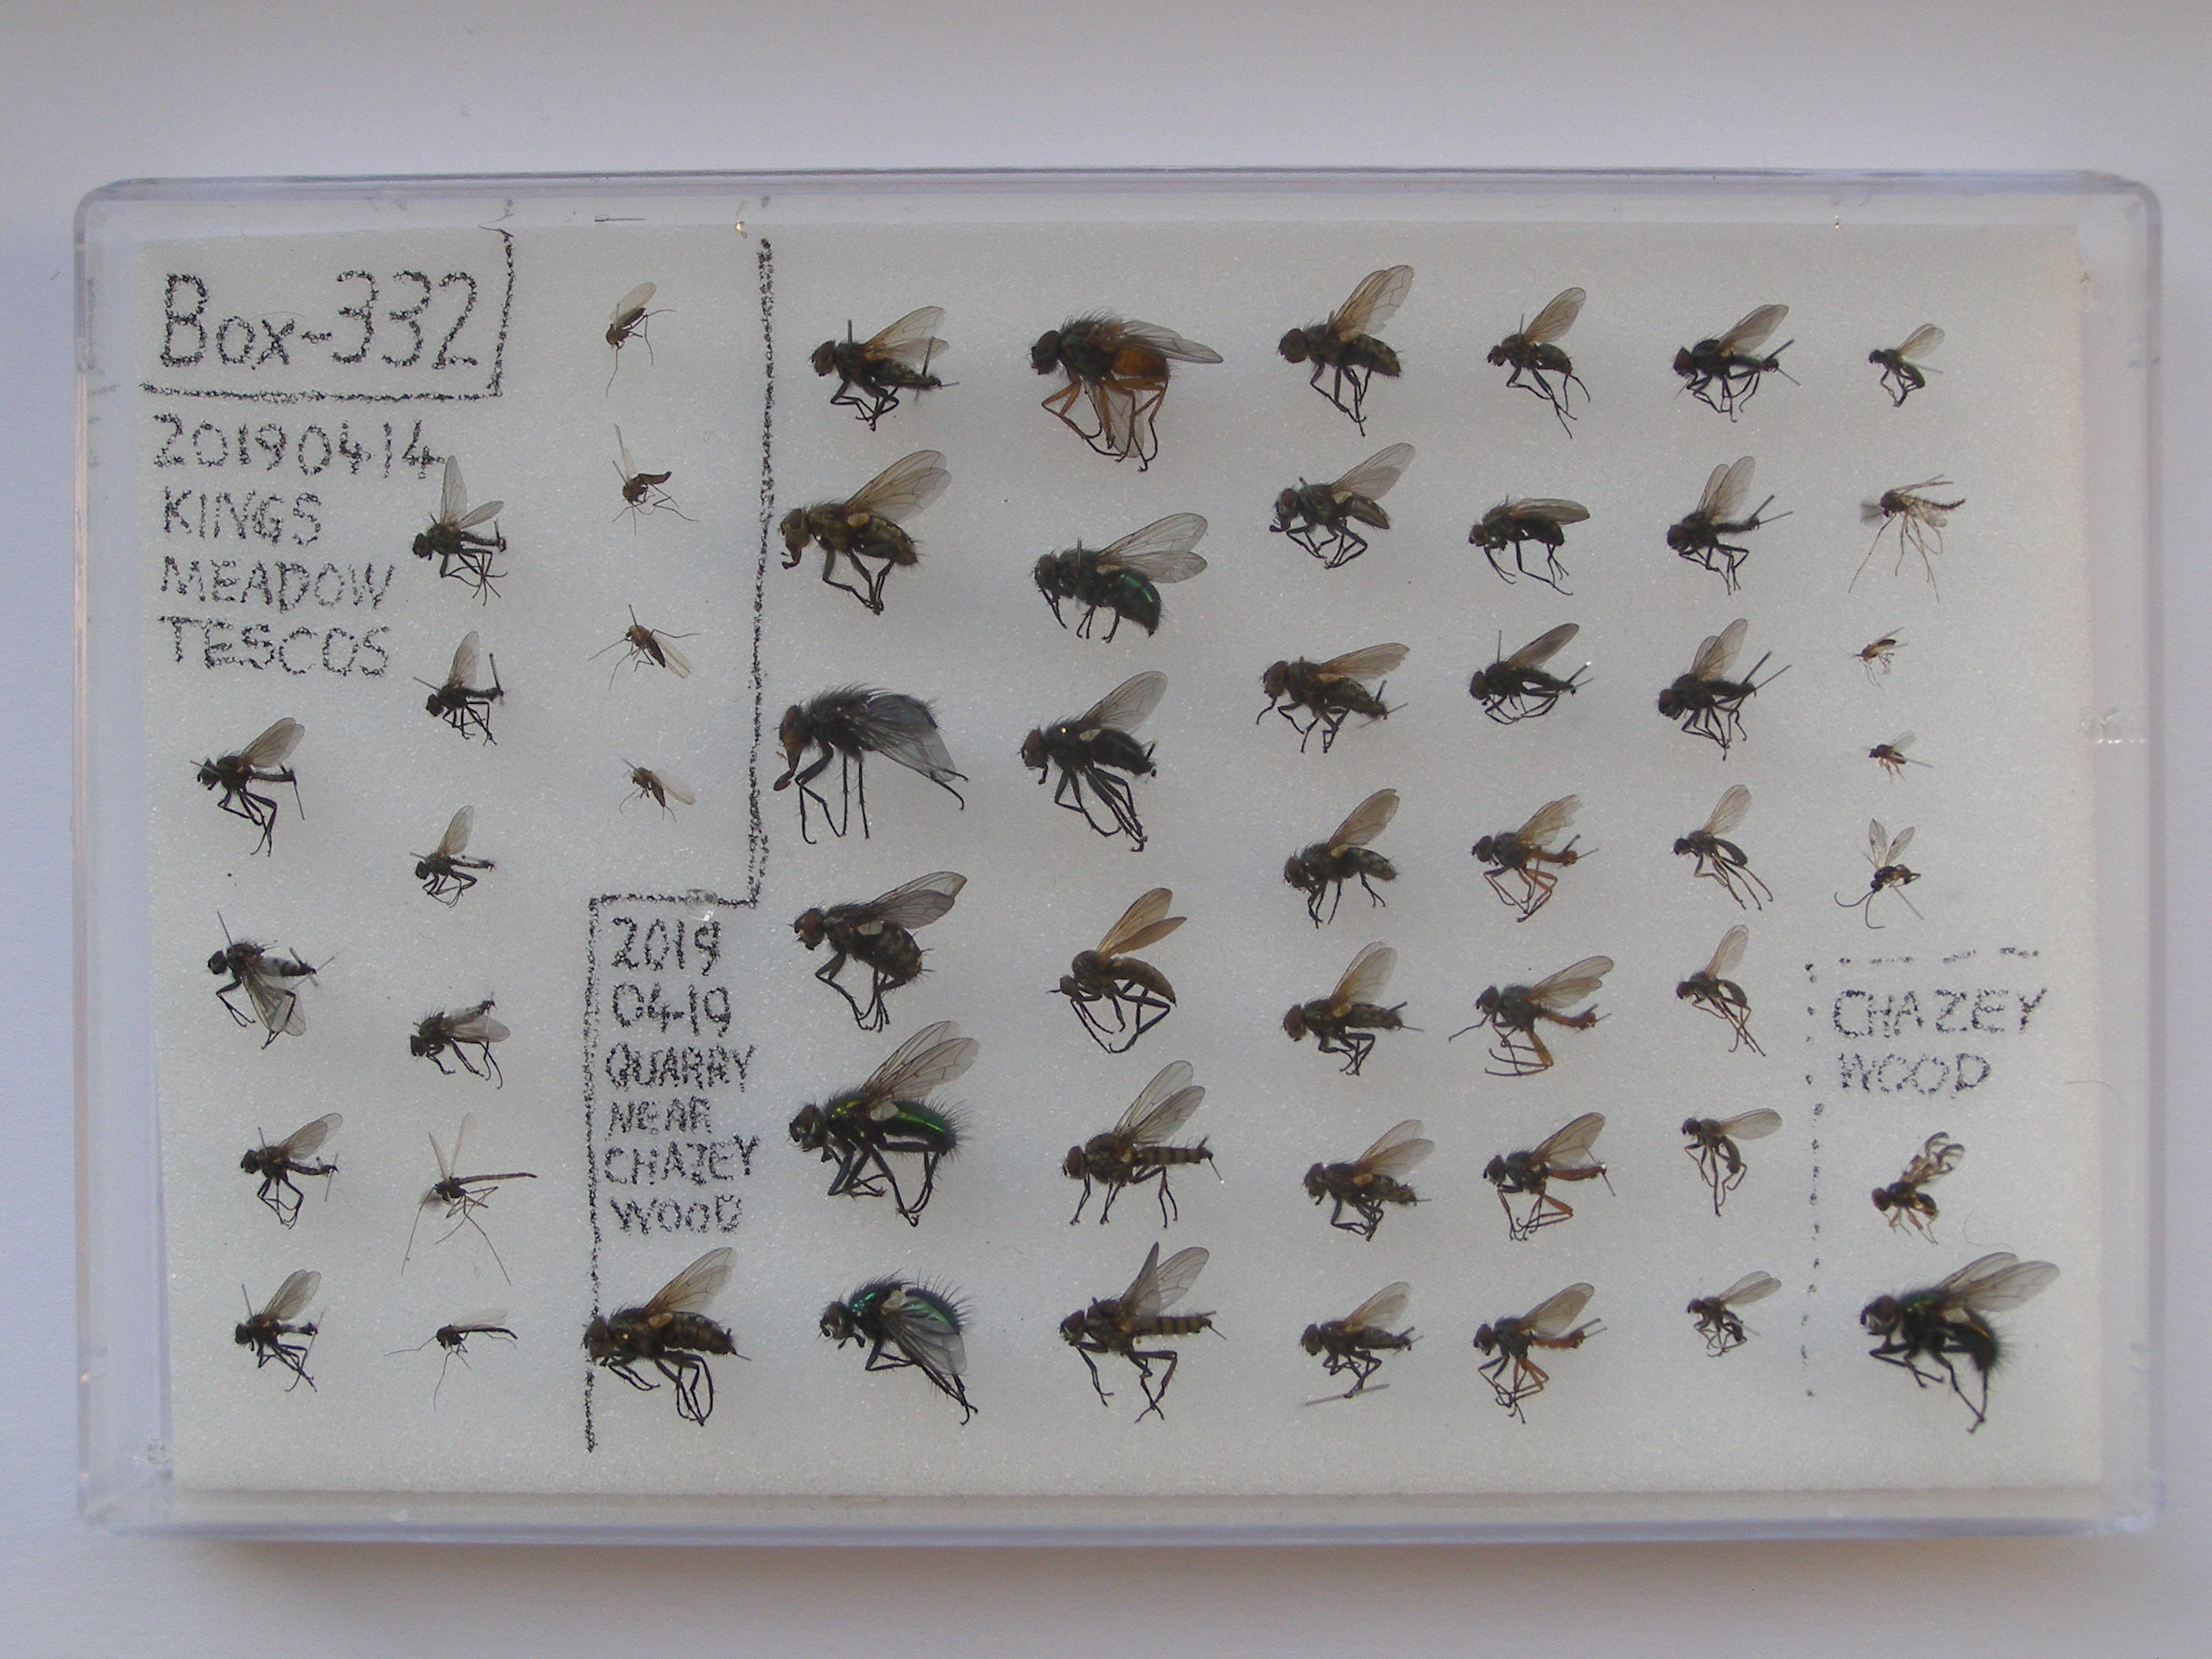 Box-332
20190414
KINGS
MEADOW
TESCOS
2019
04-19
QUARRY
NEAR
CHAZEY
WOOD
CHAZEY
WOOD